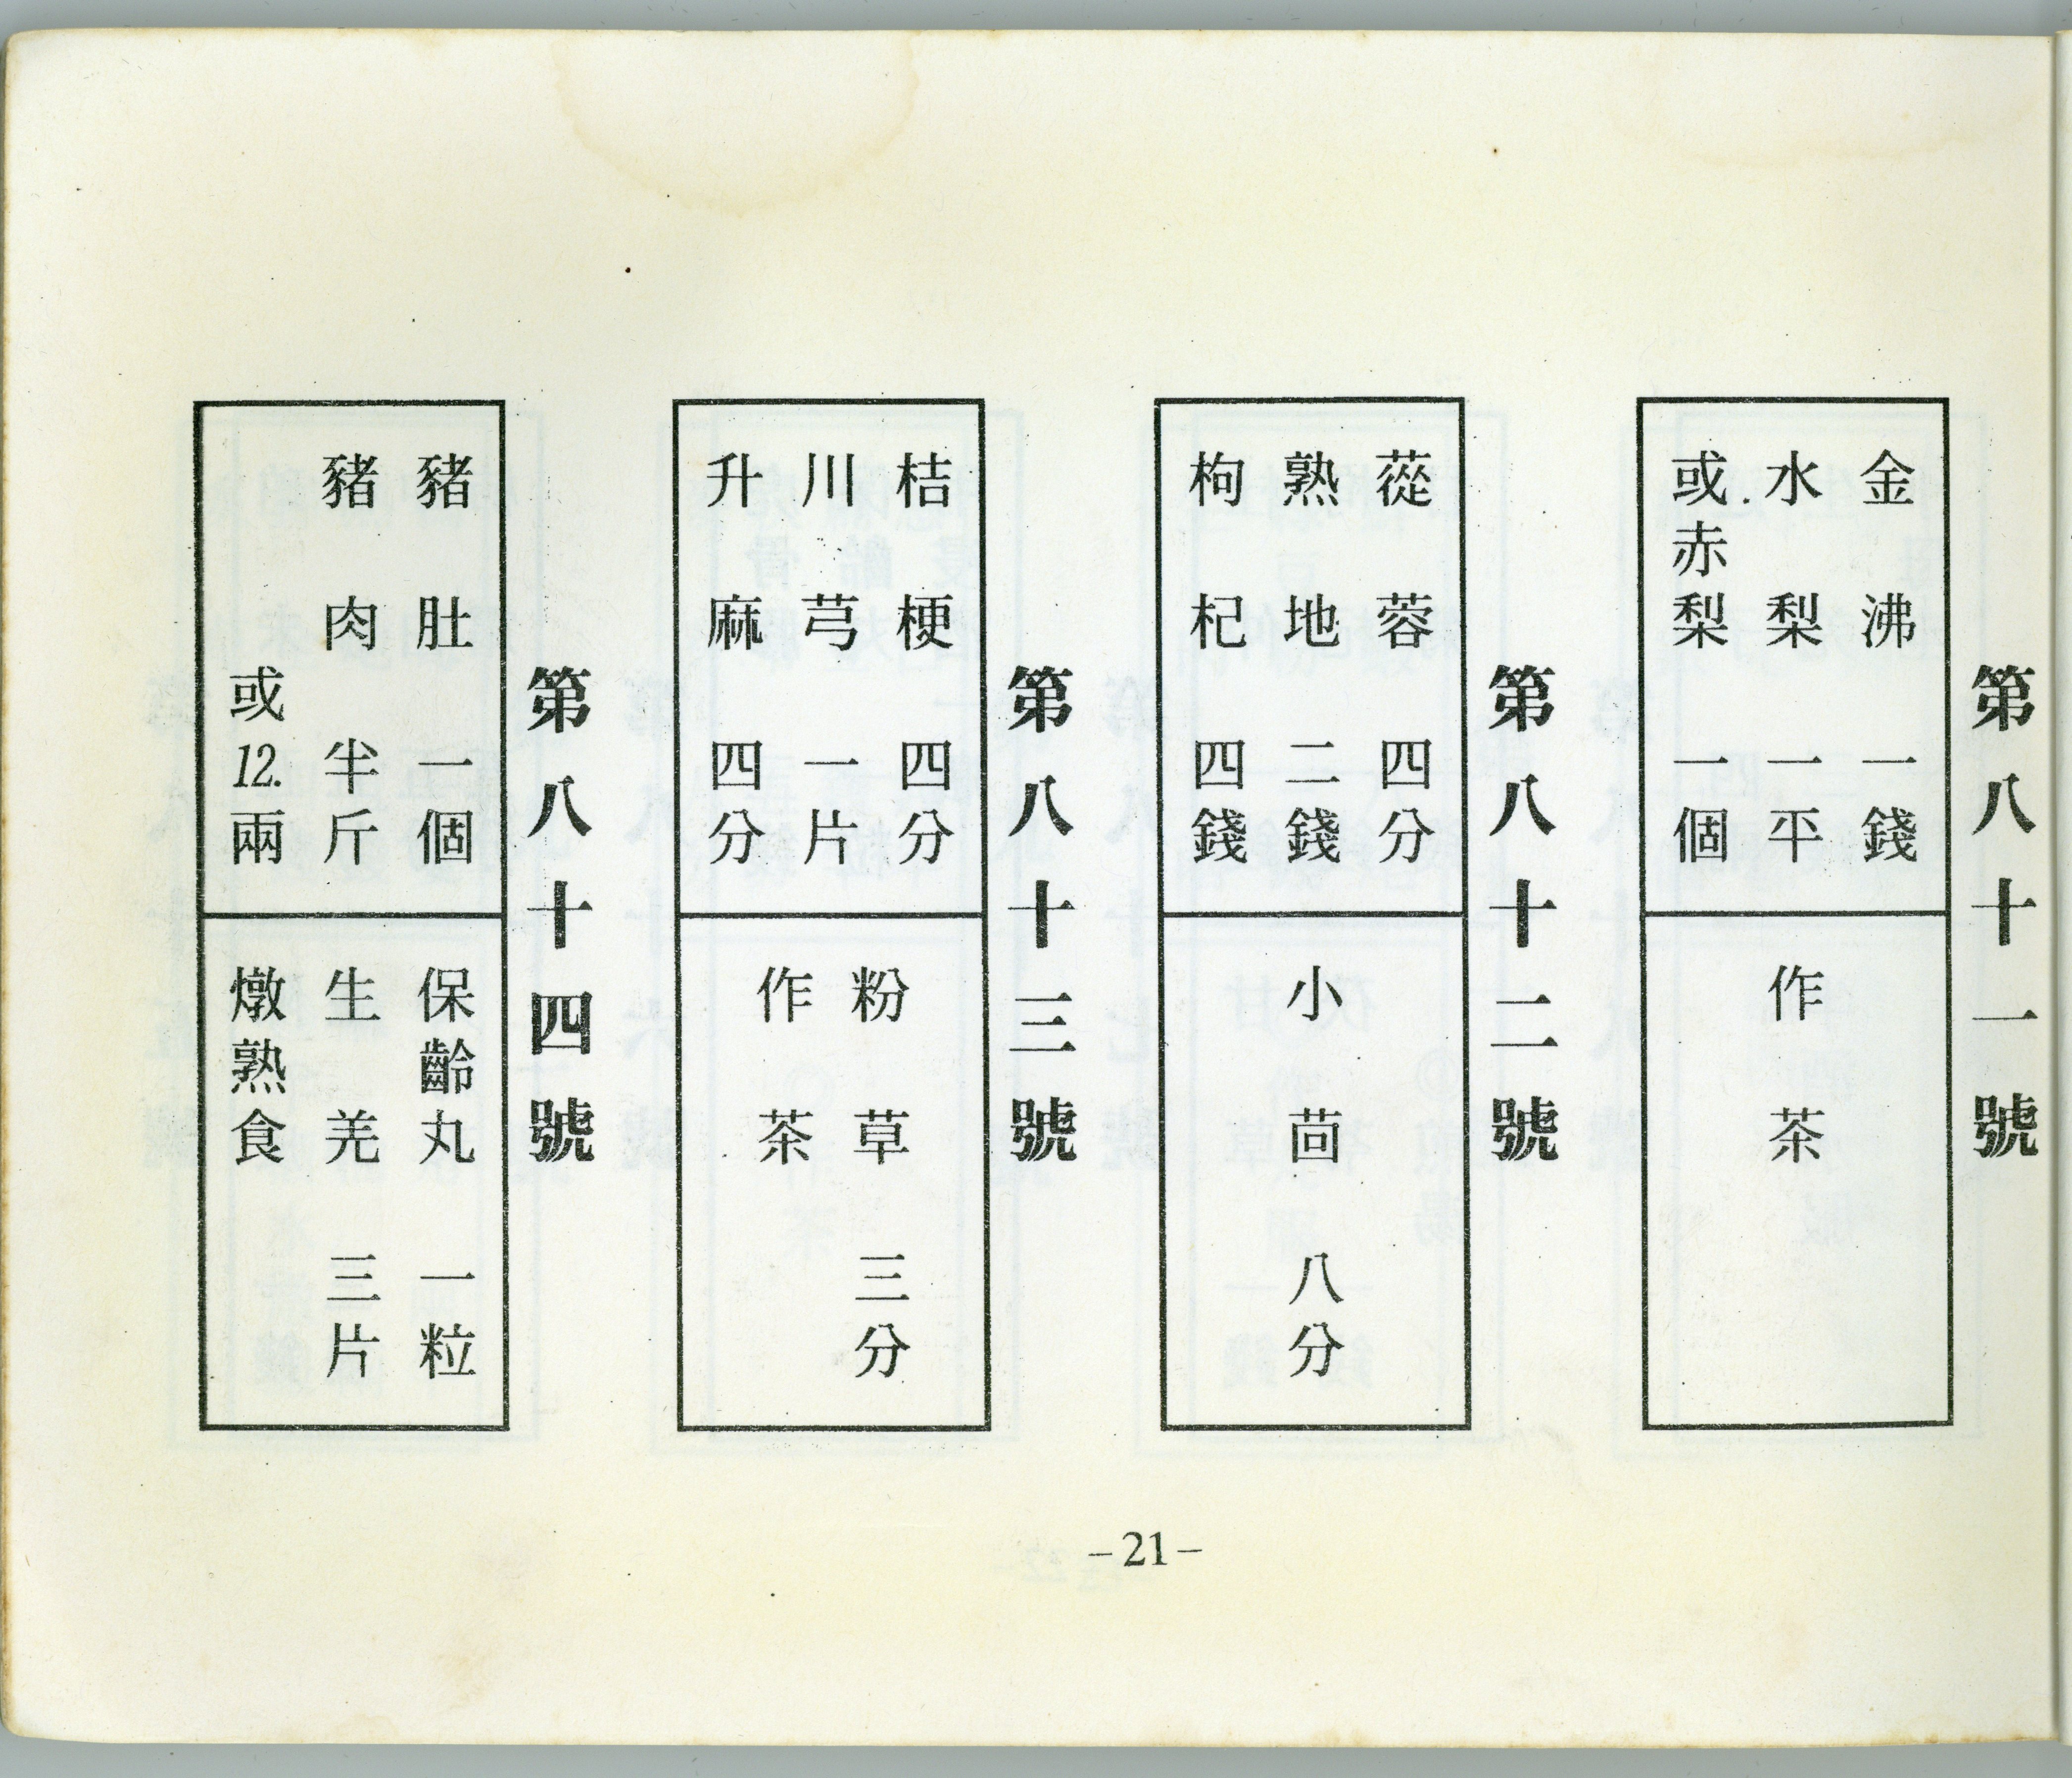 第八十一號
金沸一錢
水梨一平
或赤梨一個
作茶
第八十二號
蓯蓉四分
熟地二錢
枸杞四錢
小茴八分
第八十三號
桔梗四分
川芎一片
升麻四分
粉草三分
作茶
第八十四號
豬肚一個
豬肉半斤
或12.兩
保齡丸一粒
生羌三片
燉熟食
–21–